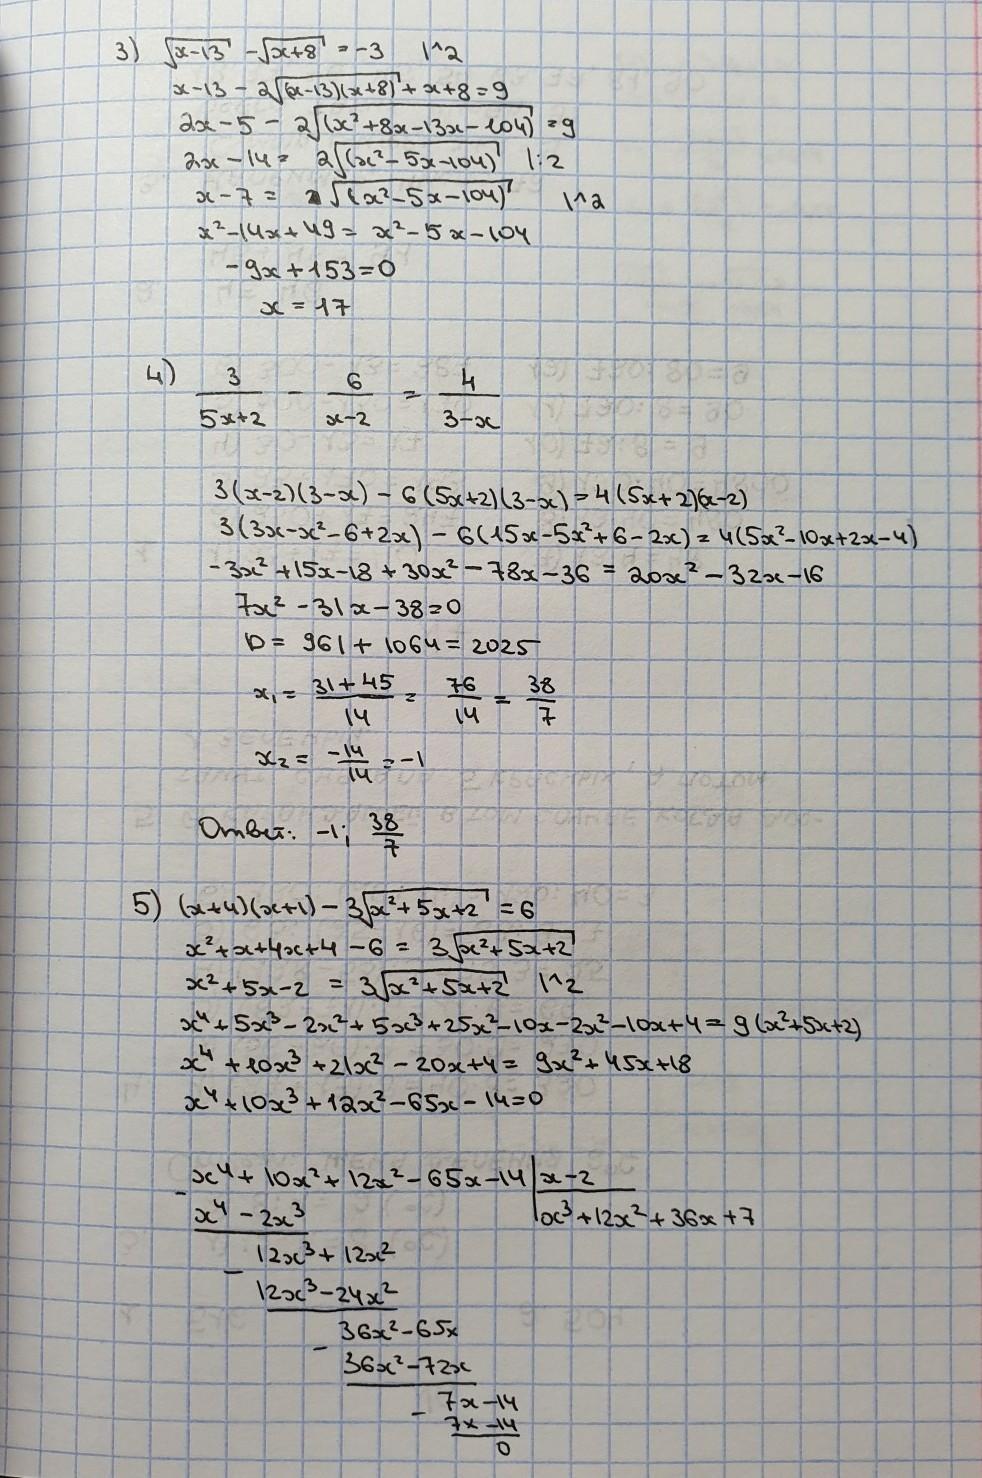 3) √(x-13) - √(x+8) = -3 |^2
x-13 - 2√((x-13)(x+8)) + x+8 = 9
2x - 5 - 2√((x²+8x-13x-104)) = 9
2x - 14 = 2√((x²-5x-104)) |:2
x - 7 = √((x²-5x-104)) |^2
x² - 14x + 49 = x² - 5x - 104
-9x + 153 = 0
x = 17
4) 3/(5x+2) - 6/(x-2) = 4/(3-x)
3(x-2)(3-x) - 6(5x+2)(3-x) = 4(5x+2)(x-2)
3(3x-x²-6+2x) - 6(15x-5x²+6-2x) = 4(5x²-10x+2x-4)
-3x² + 15x - 18 + 30x² - 78x - 36 = 20x² - 32x - 16
7x² - 31x - 38 = 0
D = 961 + 1064 = 2025
x₁ = (31+45)/14 = 76/14 = 38/7
x₂ = -14/14 = -1
Ответ: -1; 38/7
5) (x+4)(x+1) - 3√(x²+5x+2) = 6
x² + x + 4x + 4 - 6 = 3√(x²+5x+2)
x² + 5x - 2 = 3√(x²+5x+2) |^2
x⁴ + 5x³ - 2x² + 5x³ + 25x² - 10x - 2x² - 10x + 4 = 9(x²+5x+2)
x⁴ + 10x³ + 21x² - 20x + 4 = 9x² + 45x + 18
x⁴ + 10x³ + 12x² - 65x - 14 = 0
- x⁴ + 10x² + 12x² - 65x - 14 | x - 2
x⁴ - 2x³ | x³ + 12x² + 36x + 7
- 12x³ + 12x²
12x³ - 24x²
- 36x² - 65x
36x² - 72x
- 7x - 14
7x - 14
0